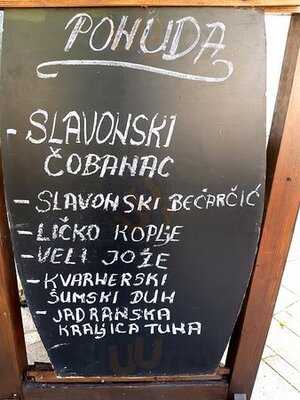 PONUDA
- SLAVONSKI
ČOBANAC
- SLAVONSKI BEĆARČIĆ
- LIČKO KOPLJE
- VELI JOŽE
- KVARNERSKI
ŠUMSKI DUH
- JADRANSKA
KRALJICA TUNA